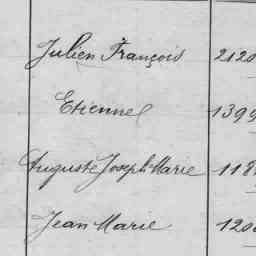 Julien François 212
Etienne 139
Auguste Joseph Marie 118
Jean Marie 120